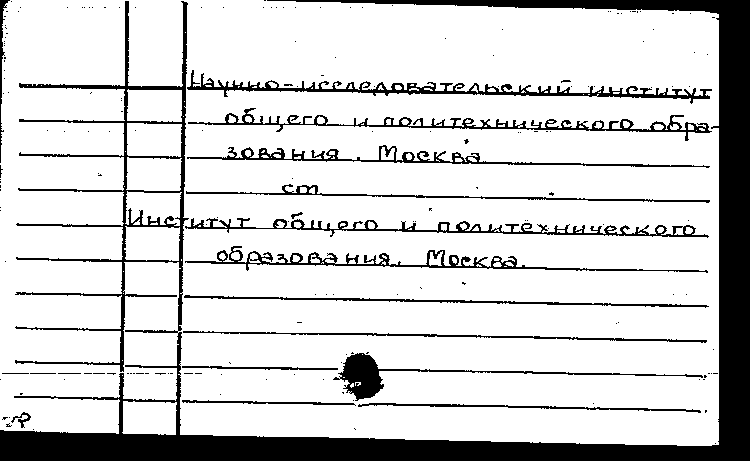 Научно-исследовательский институт
общего и политехнического обра-
зования. Москва
см
Институт общего и политехнического
образования. Москва.